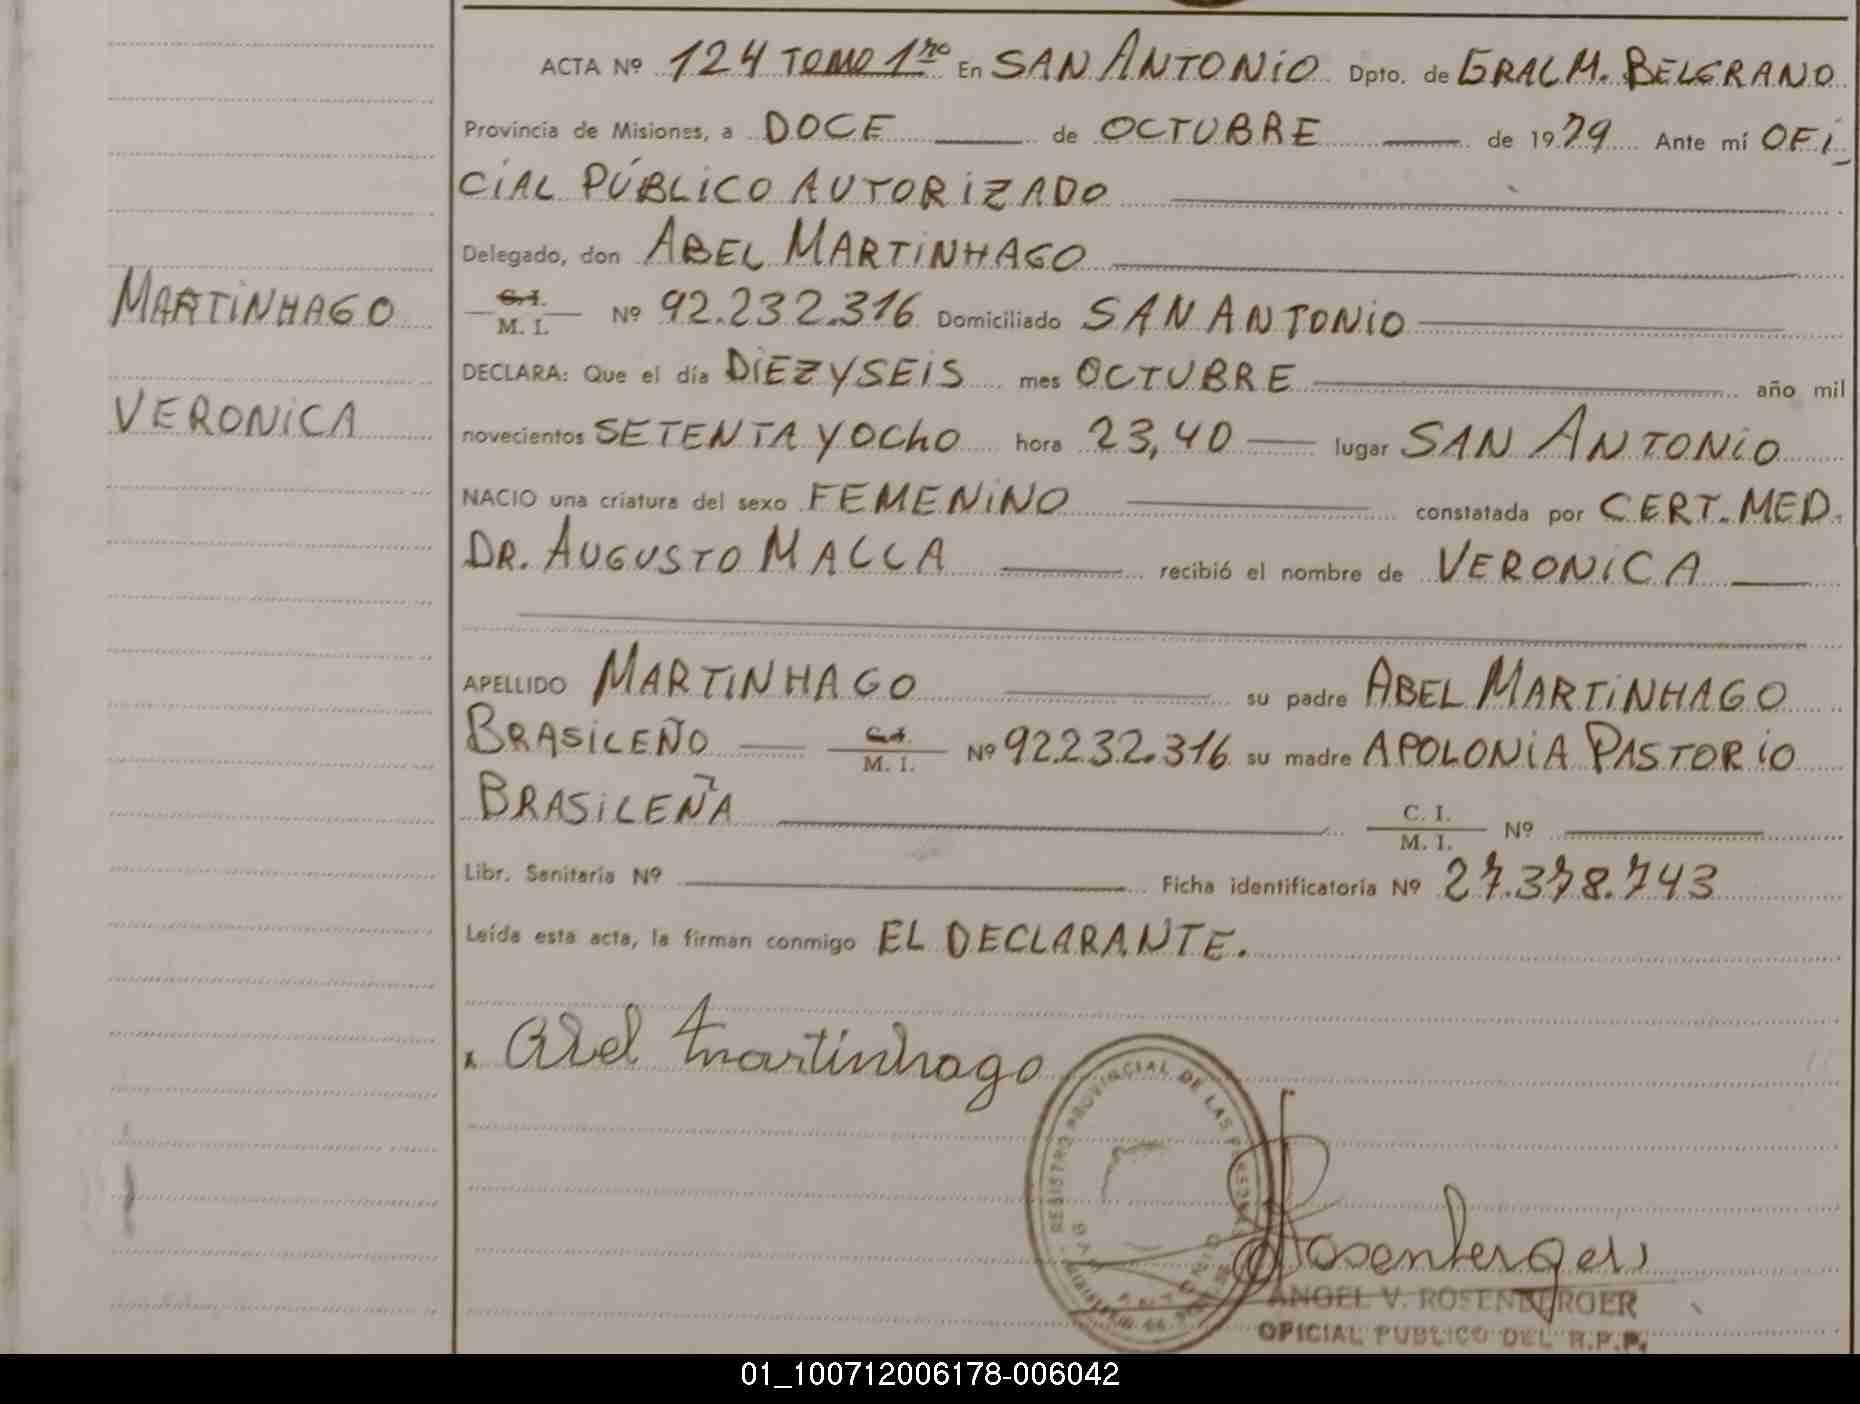 ACTA Nº 124 TOMO 1ro En SAN ANTONIO Dpto. de GRAL M. BELGRANO
Provincia de Misiones, a DOCE de OCTUBRE de 1979 Ante mí OFI_
CIAL PÚBLICO AUTORIZADO
Delegado, don ABEL MARTINHAGO
C.I. M. I. Nº 92.232.316 Domiciliado SAN ANTONIO
DECLARA: Que el día DIEZ Y SEIS mes OCTUBRE año mil
novecientos SETENTA Y OCHO hora 23,40 lugar SAN ANTONIO
NACIO una criatura del sexo FEMENINO constatada por CERT. MED.
DR. AUGUSTO MALLA recibió el nombre de VERONICA
APELLIDO MARTINHAGO su padre ABEL MARTINHAGO
BRASILEÑO C.I. M. I. Nº 92.232.316 su madre APOLONIA PASTORIO
BRASILEÑA C. I. M. I. Nº
Libr. Sanitaria Nº Ficha identificatoria Nº 27.378.743
Leída esta acta, la firman conmigo EL DECLARANTE.
MARTINHAGO
VERONICA
Abel Martinhago
REGISTRO PROVINCIAL DE LAS PERSONAS
Rosenberger
ANGEL V. ROSENBERGER
OFICIAL PUBLICO DEL R.P.P.
01_100712006178-006042